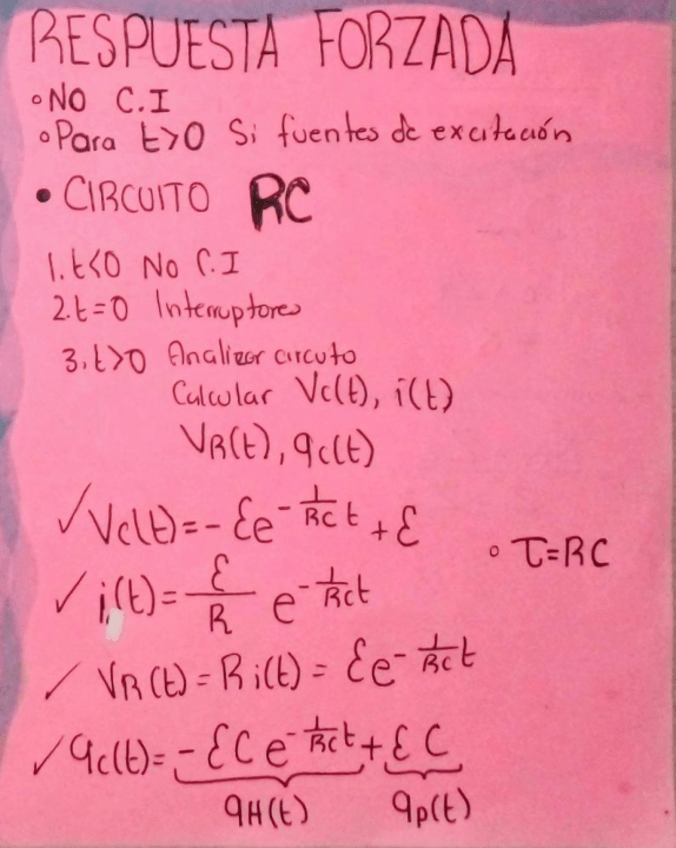 RESPUESTA FORZADA
◦NO C.I
◦Para t>0 Si fuentes de excitación
• CIRCUITO RC
1. t<0 No C.I
2. t=0 Interruptores
3. t>0 Analizar circuto
Calcular Vc(t), i(t)
VR(t), qc(t)
✓ Vc(t)=-Ɛe^{-\frac{1}{RC}t}+Ɛ
◦ τ=RC
✓ i(t)=\frac{Ɛ}{R} e^{-\frac{1}{RC}t}
✓ VR(t)=Ri(t)=Ɛe^{-\frac{1}{RC}t}
✓ qc(t)=-ƐCe^{-\frac{1}{RC}t}+ƐC
qH(t) qp(t)